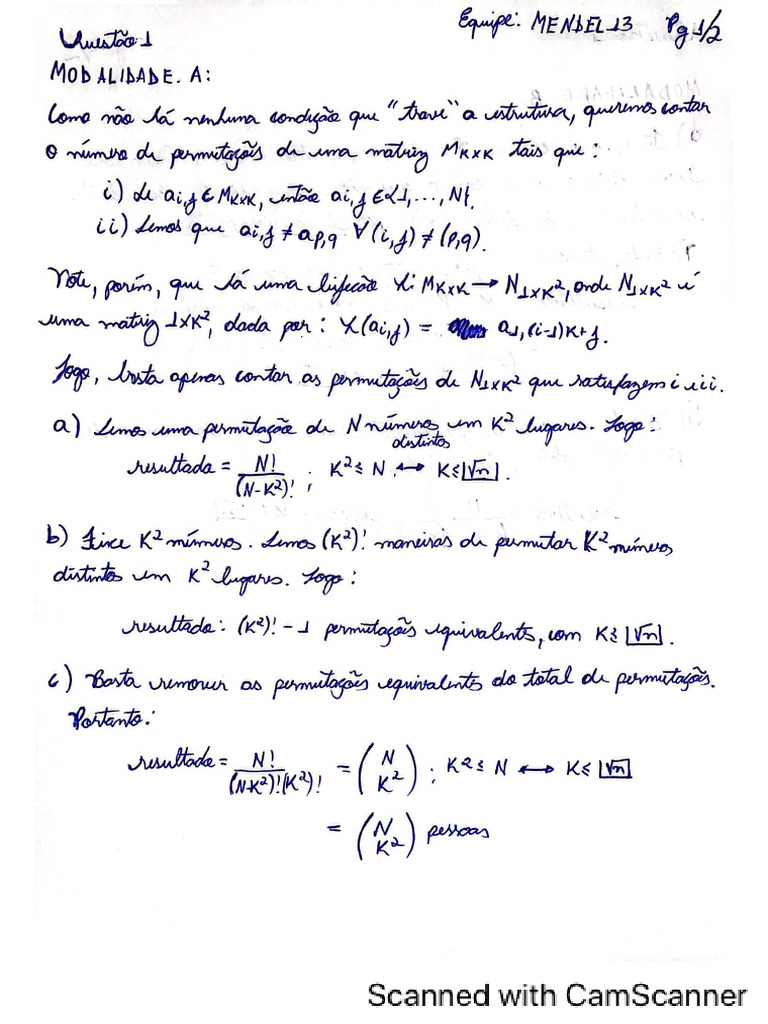 Equipe: MENDEL 13 Pg 1/2
Questão 1
MODALIDADE. A:
Como não há nenhuma condição que "trave" a estrutura, queremos contar
o número de permutações de uma matriz M_{KxK} tais que:
i) Se a_{i,j} ∈ M_{KxK}, então a_{i,j} ∈ {1, ..., N}.
ii) Temos que a_{i,j} ≠ a_{p,q} ∀ (i,j) ≠ (p,q).
Note, porém, que há uma bijeção : M_{KxK} → N_{1xK²}, onde N_{1xK²} é
uma matriz 1xK², dada por: (a_{i,j}) = a_{1,(i-1)K+j}.
Logo, basta apenas contar as permutações de N_{1xK²} que satisfazem i e ii.
a) Temos uma permutação de N números distintos em K² lugares. Logo:
resultado = N!/(N-K²)! ; K² ≤ N ↔ K ≤ ⌊√n⌋.
b) Fixe K² números. Temos (K²)! maneiras de permutar K² números
distintos em K² lugares. Logo:
resultado: (K²)! - 1 permutações equivalents, com K ≤ ⌊√n⌋.
c) Basta remover as permutações equivalents do total de permutações.
Portanto:
resultado = N!/(N-K²)!(K²)! = (N K²) ; K² ≤ N ↔ K ≤ ⌊√n⌋
= (N K²) pessoas
Scanned with CamScanner